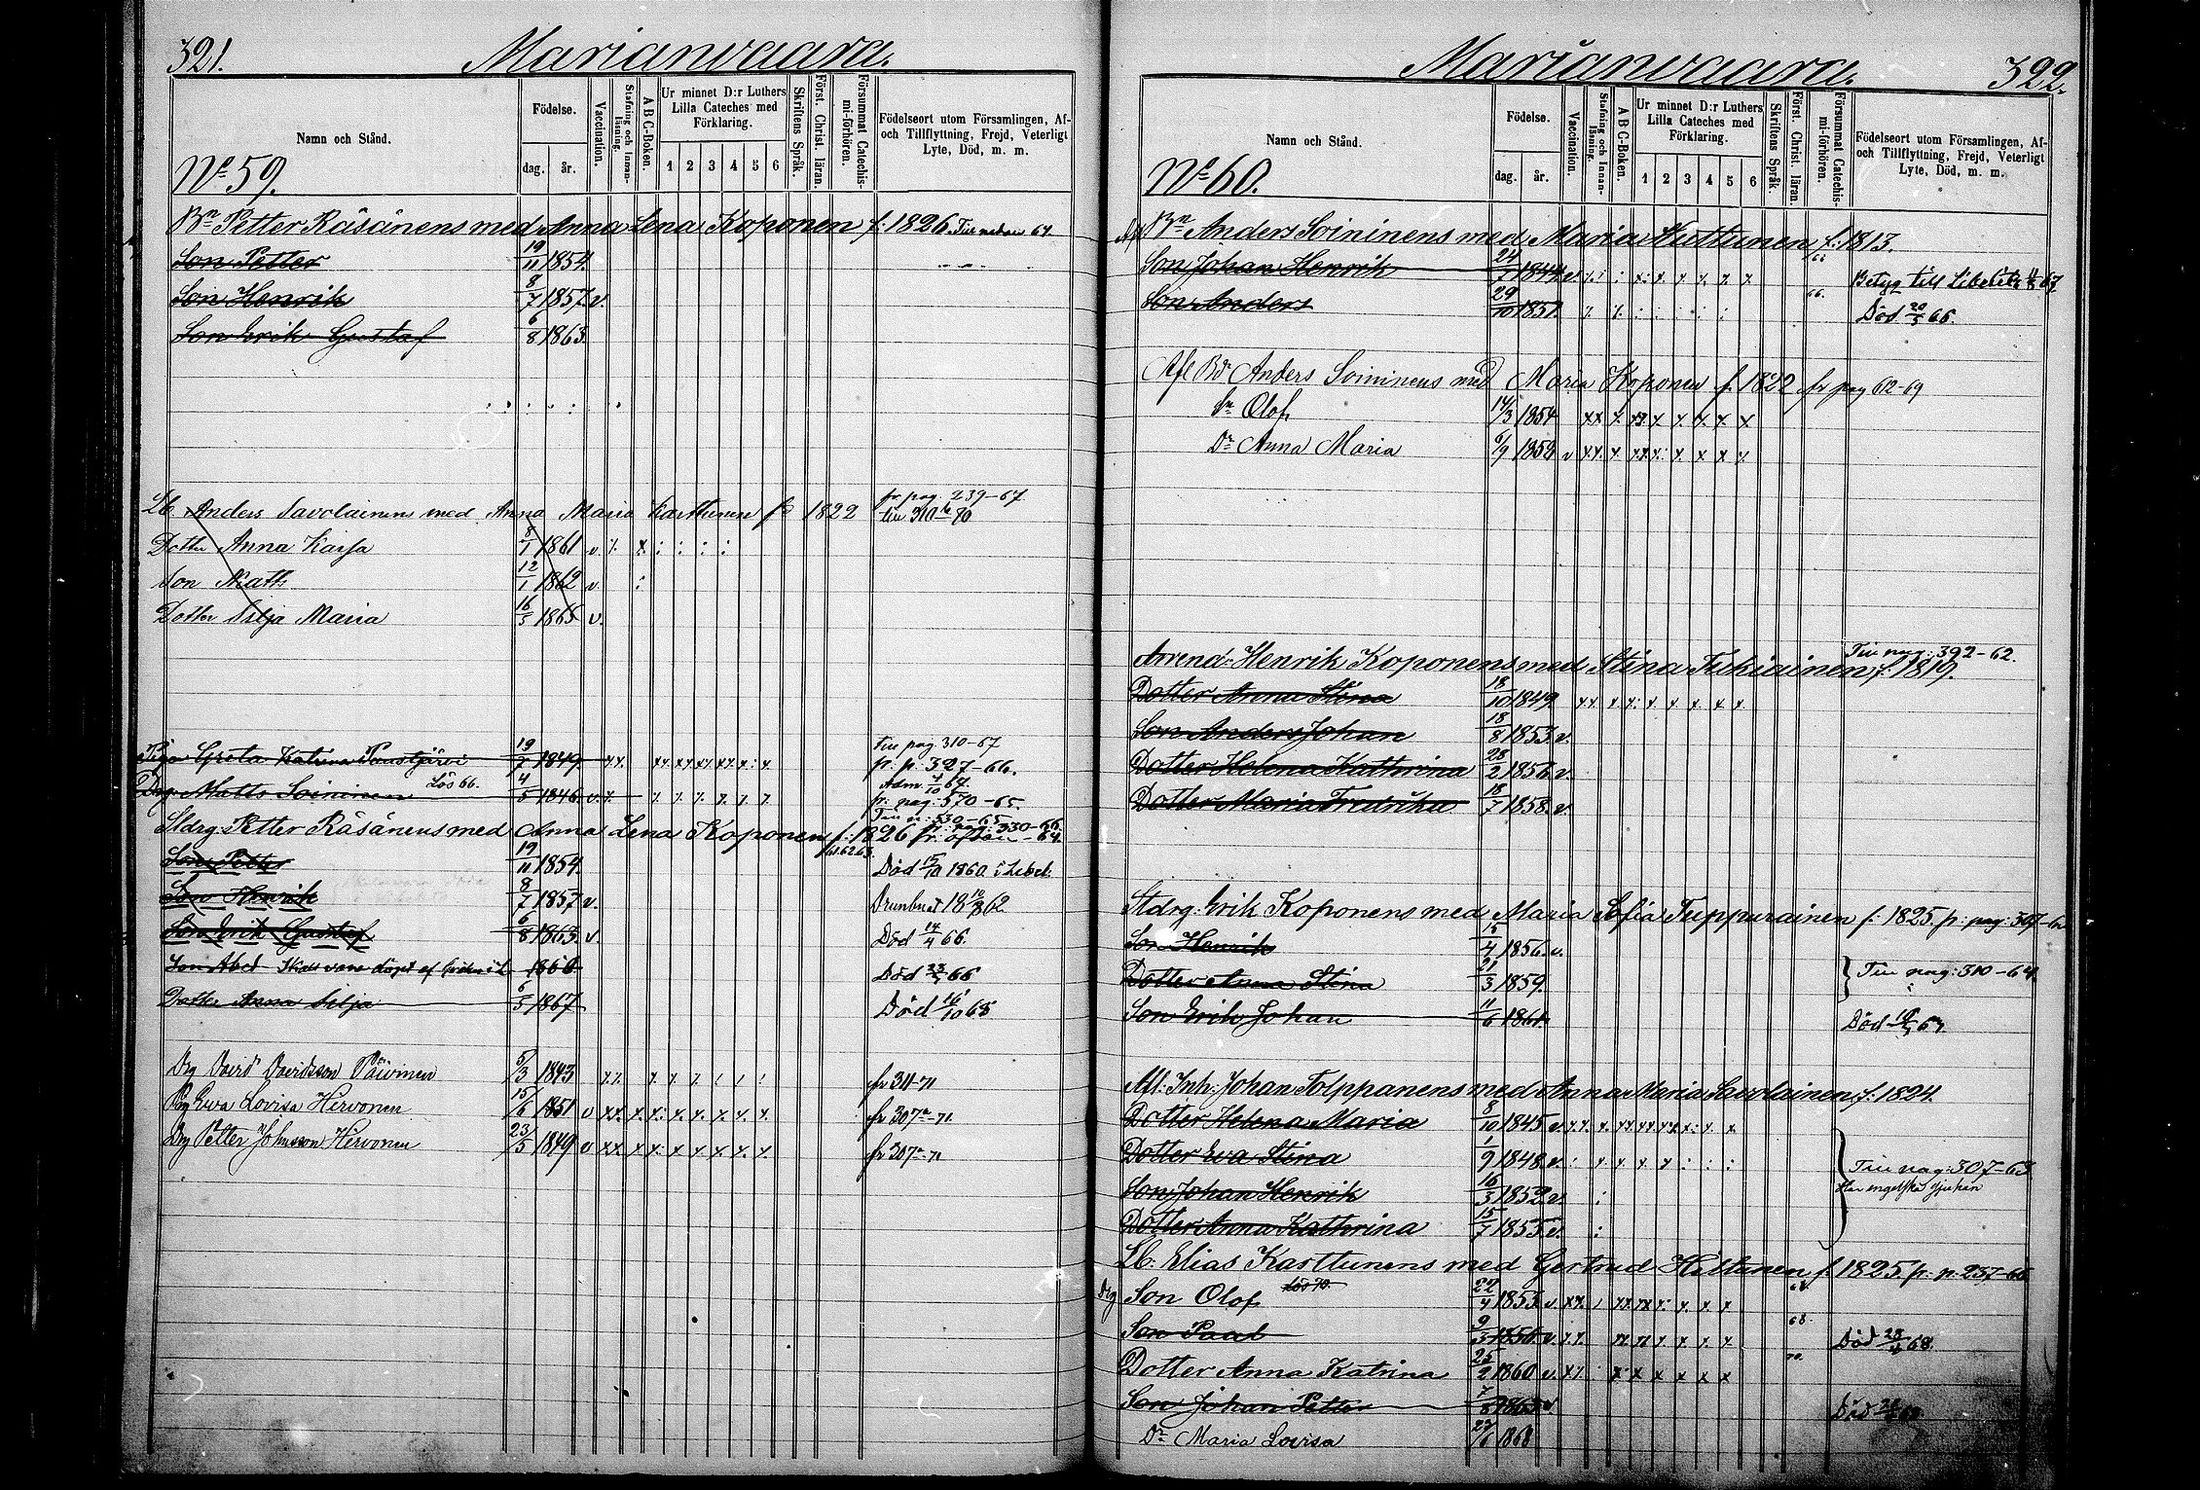 321.
Marianvaara.
Namn och Stånd.
Födelse.
dag.
år.
Vaccination.
Stafning och Innanläsning.
A B C-Boken.
Ur minnet D:r Luthers Lilla Cateches med Förklaring.
1 2 3 4 5 6
Skriftens Språk.
Först. Christ. läran.
Försummat Catechismi-förhören.
Födelseort utom Församlingen, Af- och Tillflyttning, Frejd, Veterligt Lyte, Död, m. m.
No 59.
Bn Petter Räsänens med Anna Lena Koponen f: 1826. Tin nedan 64.
Son Petter 19/11 1854.
Son Henrik 8/7 1857. v.
Son Erik Gustaf 6/8 1863.
Lb Anders Savolainens med Anna Maria Karttunen fd 1822 fr pag. 239-67
till 310 70
Dotter Anna Kaisa 8/1 1861 v.
Son Matts 12/1 1862 v.
Dotter Silja Maria 16/5 1865 v.
Tin pag. 310-67
Piga Greta Katrina Paustjärvi 19/7 1849. fr. p. 327-66.
Drg. Matts Soininen Lös 66. 4/5 1846 v. fr. pag. 570-65.
Stdrg. Petter Räsänens med Anna Lena Koponen f: 1826 fr. ofvan - 64.
Son Petter 19/11 1854. Död 15/10 1860. i Libel.
Son Henrik 8/7 1857. v. Drunknat 18 10/8 62
Son Erik Gustaf 6/8 1863. v. Död 14/4 66.
Son Abel 1866 Död 66
Dotter Anna Silja 6/5 1867 Död 16/10 68
Drg David Davidsson Päivinen 5/3 1843 fr 311-71
Pig Ewa Lovisa Hirvonen 15/6 1851 v fr 307-71
Drg Petter Johnsson Hirvonen 23/5 1849 v fr 307-71
Marianvaara.
322.
Namn och Stånd.
Födelse.
dag.
år.
Vaccination.
Stafning och Innanläsning.
A B C-Boken.
Ur minnet D:r Luthers Lilla Cateches med Förklaring.
1 2 3 4 5 6
Skriftens Språk.
Först. Christ. läran.
Försummat Catechismi-förhören.
Födelseort utom Församlingen, Af- och Tillflyttning, Frejd, Veterligt Lyte, Död, m. m.
No 60.
Bn Anders Soininens med Maria Huttunen f: 1813.
Son Johan Henrik 24/1 1844 v. Betyg till Libelits 67
Son Anders 29/10 1851. 66. Död 20/5 66.
Afl Bdn Anders Soininens med Maria Koponen f. 1822 fr pag 612-69
Sn Olof 14/3 1854
Dr Anna Maria 6/9 1858 v
Tin pag: 392-62.
Arrend: Henrik Koponens med Stina Tuhiainen, f: 1819.
Dotter Anna Stina 18/10 1849.
Son Anders Johan 18/8 1853. v.
Dotter Helena Kathrina 28/2 1856. v.
Dotter Maria Fredrika 18/7 1858. v.
Stdrg. Erik Koponens med Maria Sofia Tuppurainen f: 1825 fr: pag: 307-62
Son Henrik 15/4 1856. v.
Dotter Anna Stina 21/3 1859. Tin pag: 310-64.
Son Erik Johan 11/6 1861 Död
Afl: Inh: Johan Tolppanens med Anna Maria Savolainen, f: 1824.
Dotter Helena Maria 8/10 1845 v.
Dotter Eva Stina 1/9 1848. v. Tin pag: 307-63
Son Johan Henrik 16/3 1852. v. Har engelska sjukan
Dotter Anna Kathrina 15/7 1855. v.
Lb. Elias Karttunens med Gertrud Hiltunen f. 1825 fr: p. 237-66
Drg Son Olof Lös 70. 22/4 1853. v.
Son Paal 9/3 v. 68. Död 68.
Dotter Anna Katrina 25/2 1860 v. 70.
Son Johan Petter 7/8 1863 v Död
Dr Maria Lovisa 27/6 1868